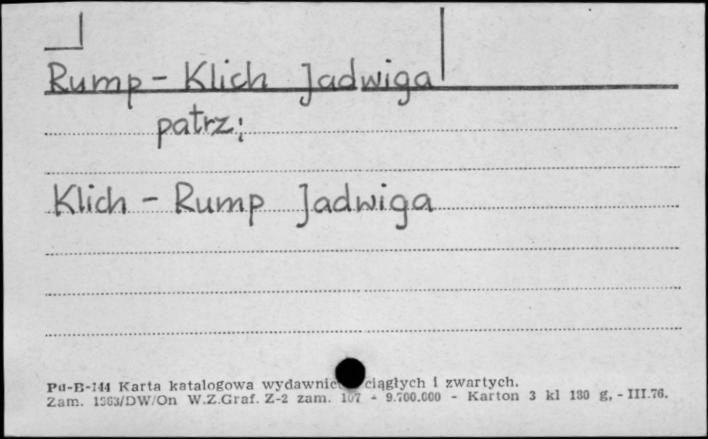 Rump - Klich Jadwiga
patrz:
Klich - Rump Jadwiga
Pu-B-144 Karta katalogowa wydawnic ciągłych i zwartych.
Zam. 1363/DW/On W.Z.Graf. Z-2 zam. 107 - 9.700.000 - Karton 3 kl 180 g. - III.76.